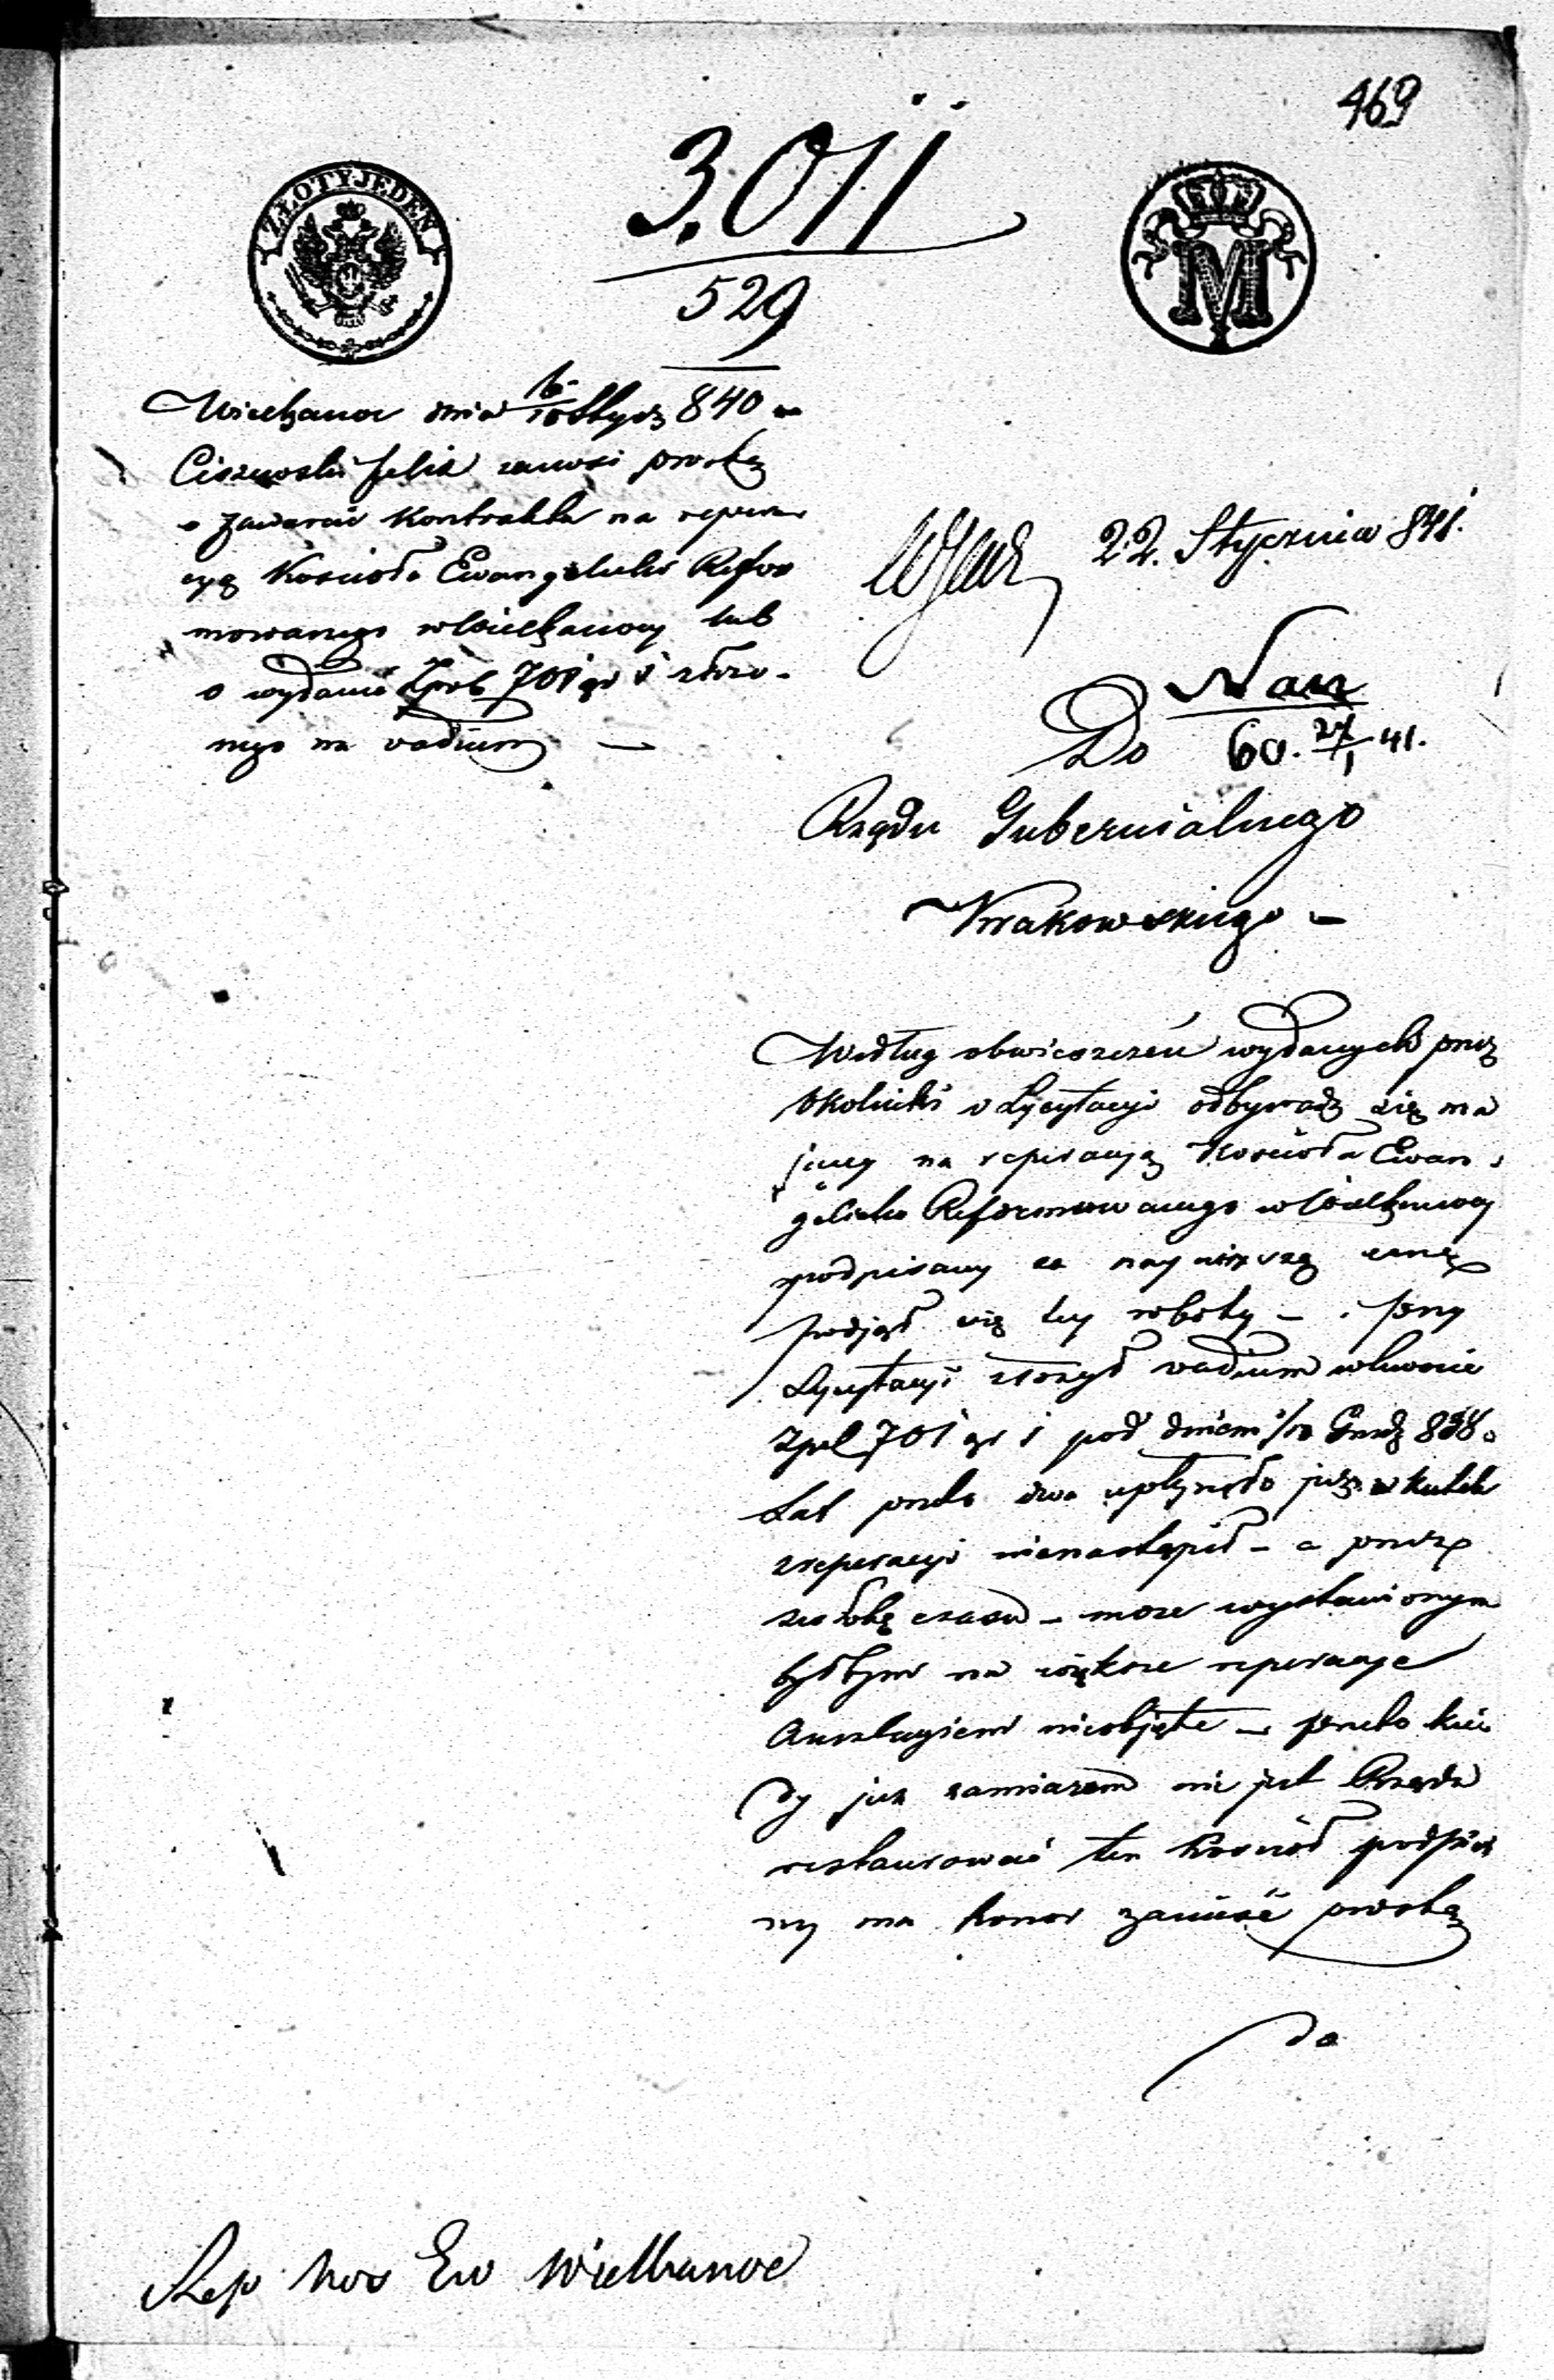 469
ZŁOTY JEDEN
3.011
529
M
Wielkanoc dnia Stycz 840
Ciszewski Felix zanosi prozbę
o zawarcie Kontraktu na repera
cyą Kościoła Ewangelicko Refor
mowanego w Wielkanocy lub
o wydanie Zpol 701 gr 1 złożo-
nego na vadium —
22. Stycznia 841.
Do 60. 27/1 41.
Rządu Gubernialnego
Krakowskiego –
Według obwieszczeń wydanych przez
Okolniki o Lycytacyi odbywać się ma
jącey na reperacyą Kościoła Ewan
gelicko Reformowanego w Wielkanocy
podpisany za naynizszą cenę
podjął się tey roboty – przy
Lycytacyi złożył vadium w kwocie
Zpol 701 gr 1 pod dniem Grud 838.
Lat przeto dwa upłynęło już skutek
z reperacyi nienastąpił – a przez
zwłokę czasu – może wystawionym
byłbym na większe reperacye
Anszlagiem nieobjęte – przeto kie
dy już zamiarem nie jest Rządu
restaurować ten Kościół podpisa
ny ma honor zanieść prozbę
do
Rep Kos Ew Wielkanoc